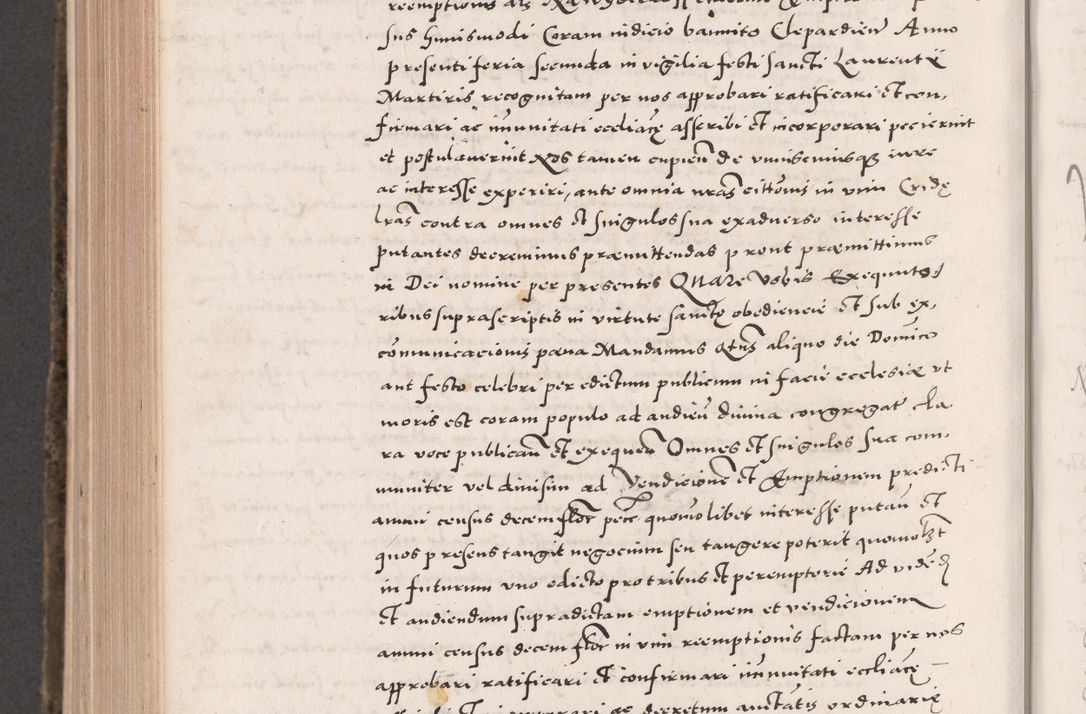 sus huiusmodi Coram iudicio bannito Clepardien Anno
presenti feria secunda in vigilia festi Sancti Laurentii
Martiris recognitam per nos approbari ratificari et con-
firmari ac immunitati eccliacę asscribi et incorporari pecierint
et postulauerint Nos tamen cupien de vniuscuiusq iure
ac interesse experiri, ante omnia nras cittonis in vim Cridę
lras contra omnes et singulos sua exaduerso interesse
putantes decreuimus præmittendas prout præmittimus
in Dei nomine per presentes Quare Vobis Exequuto
ribus suprascriptis in virtute sanctę obediencie et sub ex-
comunicacionis pæna Mandamus qtus aliquo die Domico
aut festo celebri per edictum publicum in facie ecclesiæ vt
moris est coram populo ad audien diuina congregat cla
ra voce publican et exequen Omnes et singulos sua com-
muniter vel diuisim ad Vendicione et Emptionem predicti
annui census decem flor pecc quomolibet interesse putan et
quos presens tangit negocium seu tangere poterit quomolzt
in futurum vno edicto pro tribus et peremptorie Ad viden
et audiendum supradictam emptionem et vendicionem
annui census decem flor in vim reemptionis factam per nos
approbari ratificari et confirmari immunitati eccliacę
ac decretum auctatis ordinarię